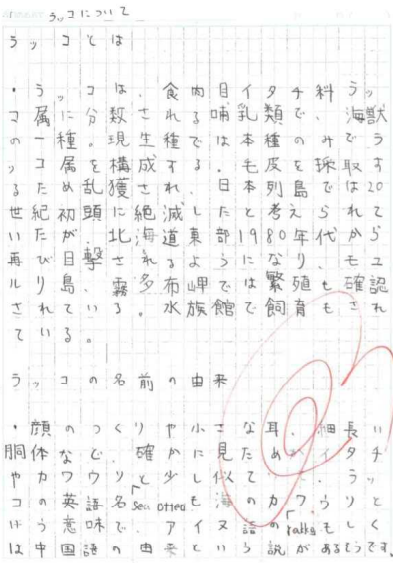 ラッコについて
ラッコとは
・ラッコは、食肉目イタチ料、ラッ
コ属に分数される哺乳類で、海獣
の一種。現生種では本種のみでラ
ッコ属を構成する。毛皮を採取す
るため乱獲され、日本列島では20
世紀初頭に絶滅したと考えられて
いたが北海道東部1980年代から
再び目撃されるようになり、ユ
ルリ島、霧多布岬では繁殖も確認
されている。水族館で飼育もされ
ている。
ラッコの名前の由来
・顔のつくりや小さな耳、細長い
胴体など、確かに見ためがイタチ
やカワウソと少し似て、ラッ
コの英語名sea otterも海のカワウソと
いう意味で、アイヌ語のrakkoもしく
は中国語の由来という説があるそうです。